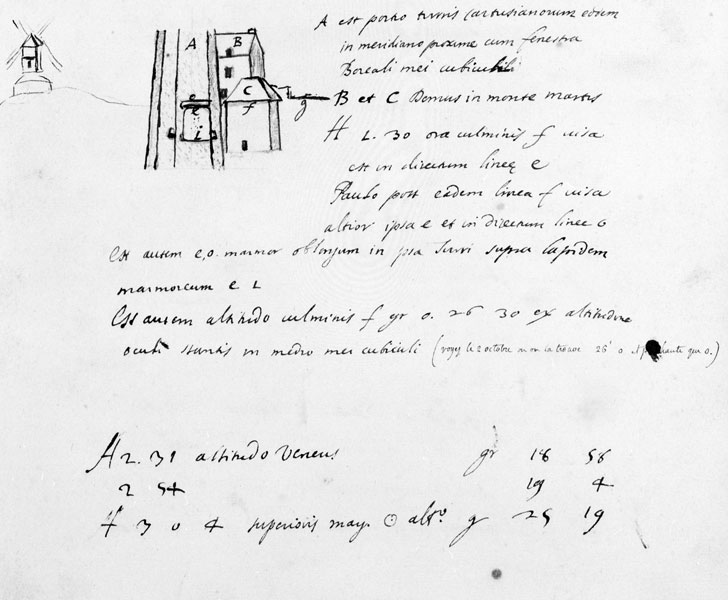 A B
C
e
e f g
i
A est portio turris Cartusianorum eodem
in meridiano proxime cum fenestra
Boreali mei cubiculi
B et C Domus in monte martis
H 2. 30 ora culminis f visa
est in directum lineę e
Paulo post eadem linea f visa
altior ipsa e et in directum lineę o
Est autem e, o. marmor oblongum in ipsa turri supra lapidem
marmoreum e L
Est autem altitudo culminis f gr 0. 26 30 ex altitudine
oculi stantis in medio mei cubiculi (voyez le 2 octobre on on la trouve 26' 0 haute que o.)
H 2. 31 altitudo Veneris gr 18 58
2 54 19 4
H 3 0 4 superioris marg. ☉ altᵒ. g 25 19